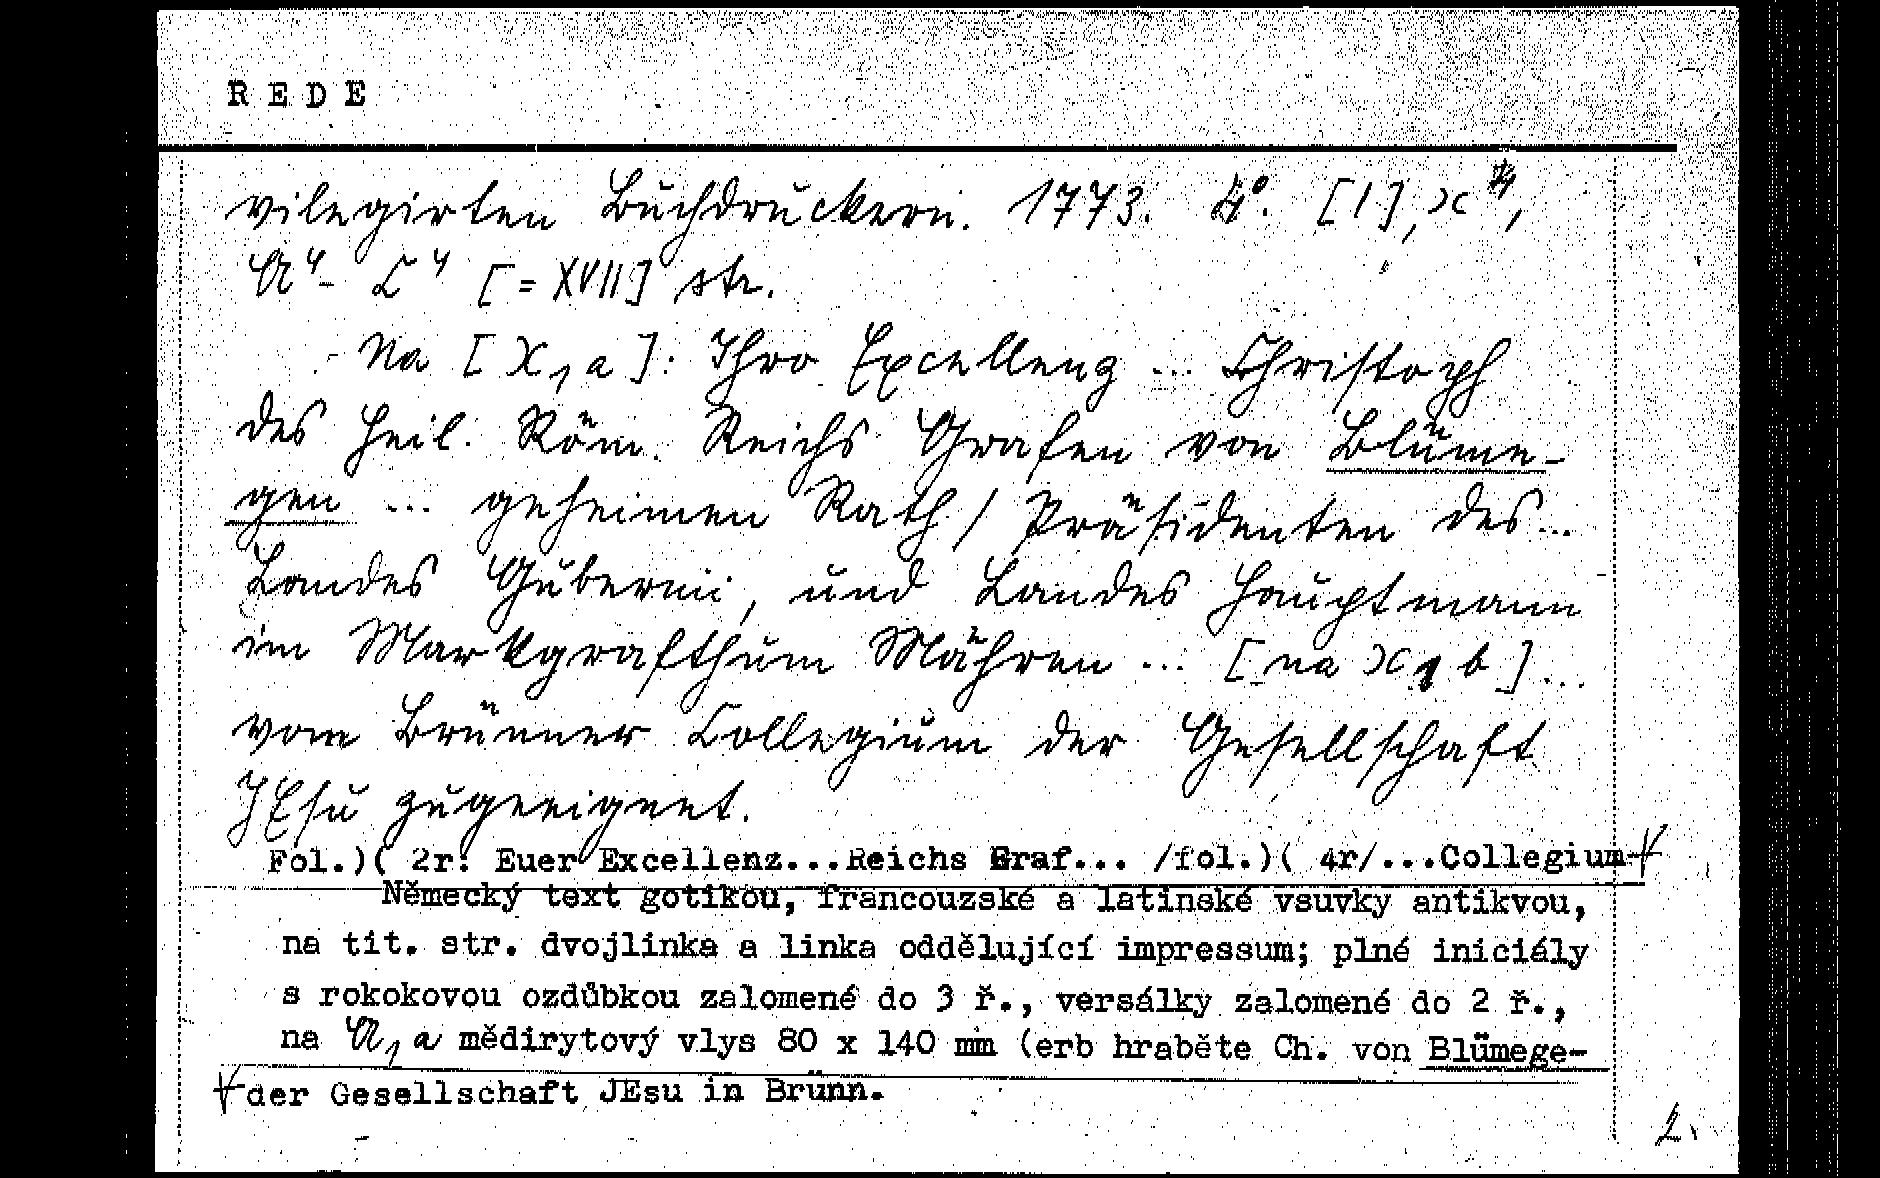 REDE
vilegirten Buchdruckern. 1773. 4°. [1], χ⁴,
A⁴ – C⁴ [= XVII] str.
Na [χ₁a]: Ihro Excellenz ... Christoph
des Heil. Röm. Reichs Grafen von Blüme-
gen ... geheimen Rath / Präsidenten des...
Landes Gubernii, und Landes Hauptmann
im Markgrafthum Mähren ... [na χ₁b]...
vom Brünner Collegium der Gesellschaft
JEsu zugeeignet.
Fol.)( 2r: Euer Excellenz...Reichs Graf... /fol.)( 4r/...Collegium
Německý text gotikou, francouzské a latinské vsuvky antikvou,
na tit. str. dvojlinka a linka oddělující impressum; plné iniciály
s rokokovou ozdůbkou zalomené do 3 ř., versálky zalomené do 2 ř.,
na A₁a mědirytový vlys 80 x 140 mm (erb hraběte Ch. von Blümege-
der Gesellschaft JEsu in Brünn.
2.